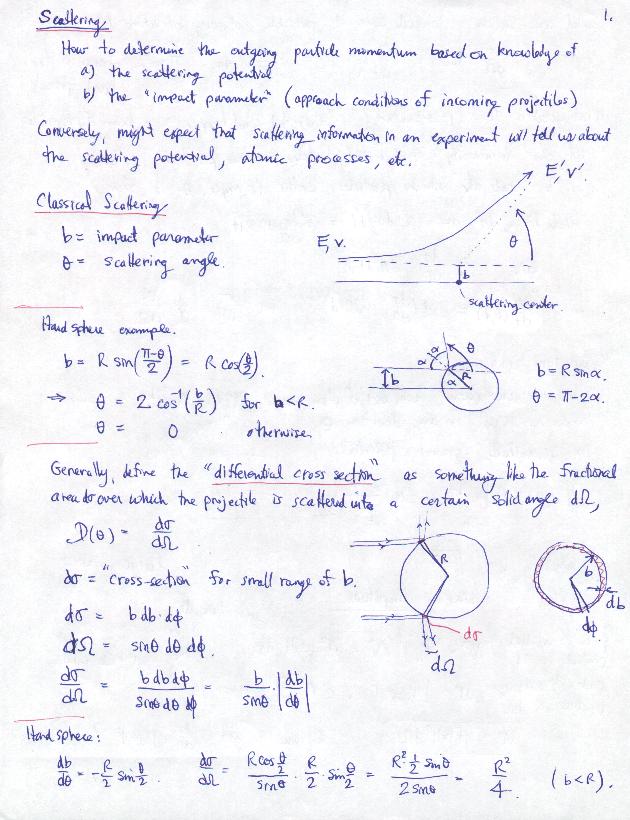 Scattering
1.
How to determine the outgoing particle momentum based on knowledge of
a) the scattering potential
b) the "impact parameter" (approach conditions of incoming projectiles)
Conversely, might expect that scattering information in an experiment will tell us about
the scattering potential, atomic processes, etc.
Classical Scattering
b = impact parameter
θ = scattering angle.
E, v.
E', v'.
θ
b
scattering center.
Hard sphere example.
b = R sin(π-θ/2) = R cos(θ/2).
⇒ θ = 2 cos⁻¹(b/R) for b<R.
θ = 0 otherwise.
b
α α θ
α R
b = R sin α.
θ = π-2α.
Generally, define the "differential cross section" as something like the fractional
area dσ over which the projectile is scattered into a certain solid angle dΩ,
D(θ) = dσ/dΩ
dσ = "cross-section" for small range of b.
dσ = b db·dφ
dΩ = sinθ dθ dφ.
dσ/dΩ = b db dφ / sinθ dθ dφ = b/sinθ · |db/dθ|
R
dσ
dΩ
b
db
dφ
Hard sphere:
db/dθ = -R/2 sin θ/2. dσ/dΩ = R cos θ/2 / sinθ · R/2 · sin θ/2 = R² ½ sinθ / 2 sinθ = R²/4. (b<R).